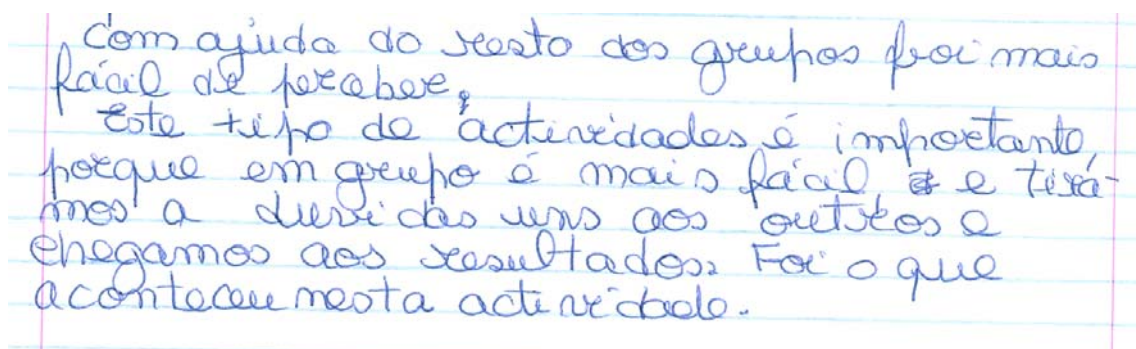 Com ajuda do resto dos grupos foi mais
fácil de perceber.
Este tipo de actividades é importante,
porque em grupo é mais fácil, e tirá-
mos a duvidas uns aos outros e
chegamos aos resultados. Foi o que
aconteceu nesta actividade.